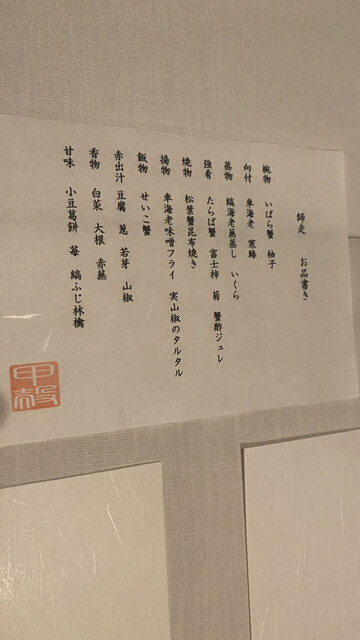 師走 お品書き
椀物 いばら蟹 柚子
向付 車海老 寒鰆
蒸物 縞海老蕪蒸し いくら
強肴 たらば蟹 富士柿 菊 蟹酢ジュレ
焼物 松葉蟹昆布焼き
揚物 車海老味噌フライ 実山椒のタルタル
飯物 せいこ蟹
赤出汁 豆腐 葱 若芽 山椒
香物 白菜 大根 赤蕪
甘味 小豆葛餅 苺 縞ふじ林檎
甲殻